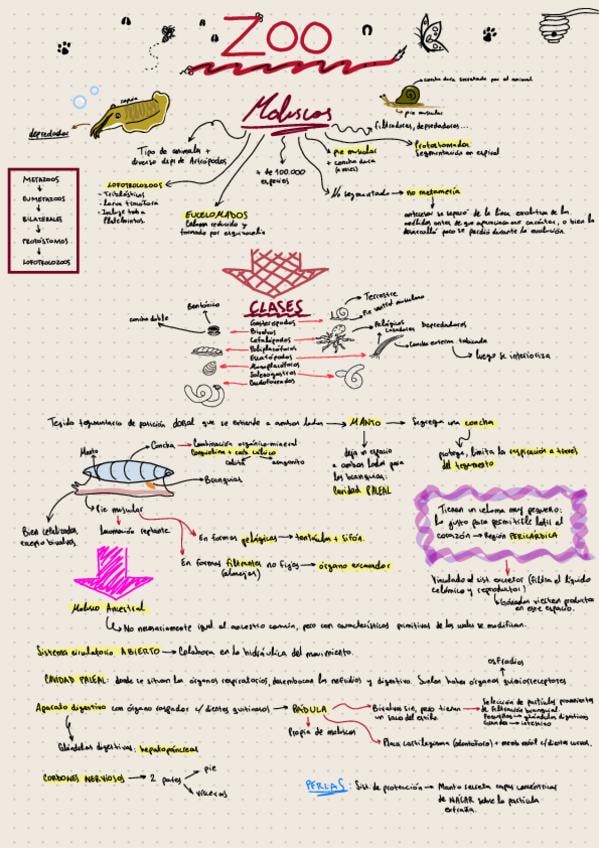 ZOO
concha dura secretada por el animal
sepia
pie muscular
depredador
Moluscos
filtradores, depredadores...
Tipo de animales +
diverso después de Artrópodos
+ de 100.000
especies
pie muscular
+ concha dura
Protostomados
Segmentación en espiral
METAZOOS
EUMETAZOOS
BILATERALES
PROTÓSTOMOS
LOFOTROCOZOOS
LOFOTROCOZOOS
- Triblásticos
- Larva trocófora
- Incluye
EUCELOMADOS
Celoma reducido y
formado por esquizocelia
No segmentados → no metamería
antecesor se separó de la línea evolutiva de los
anélidos antes de que apareciese ese carácter, o bien lo
desarrolló pero se perdió durante la evolución.
CLASES
Gasterópodos
Bivalvos
Cefalópodos
Poliplacóforos
Escafópodos
Monoplacóforos
Solenogastros
Caudofoveados
concha doble
Bentónico
Terrestre
Pie ventral musculoso
Pelágicos
Cazadores Depredadores
Concha externa tabicada
luego se interioriza
Tejido tegumentario de posición dorsal que se extiende a ambos lados → MANTO → Segrega una concha
deja un espacio
a ambos lados para
las branquias:
Cavidad PALEAL
protege, limita la respiración a través
del tegumento
Manto
Concha → Combinación orgánico-mineral
Conquiolina + carb. cálcico
calcita
aragonito
Branquias
Bien cefalizados,
excepto bivalvos.
Pie muscular
locomoción reptante.
En formas pelágicas → tentáculos + sifón.
En formas filtrantes no fijos → órgano excavador
(almejas)
Tienen un celoma muy pequeño:
lo justo para permitirle latir al
corazón → Región PERICÁRDICA
Vinculado al sist. excretor (filtra el líquido
celómico y reproductor)
Gónadas vierten productos
en este espacio.
Molusco Ancestral
No necesariamente igual al ancestro común, pero con características primitivas de las cuales se modifican.
Sistema circulatorio ABIERTO → Colabora en la hidráulica del movimiento.
osfradios
CAVIDAD PALEAL: donde se sitúan los órganos respiratorios, desembocan los nefridios y digestivo. Suelen haber órganos quimiorreceptores
Aparato digestivo con órgano raspador c/ dientes quitinosos → RÁDULA
Propia de moluscos
Bivalvos sin, pero tienen
un saco del estilo.
Selección de partículas provenientes
de filtración branquial.
Pequeñas → glándulas digestivas
Grandes → intestino
Placa cartilaginosa (odontóforo) + memb. móvil c/ dientes curvos.
Glándulas digestivas: hepatopáncreas
CORDONES NERVIOSOS → 2 pares
pie
vísceras
PERLAS: Sist. de protección → Manto secreta capas concéntricas
de NÁCAR sobre la partícula
extraña.